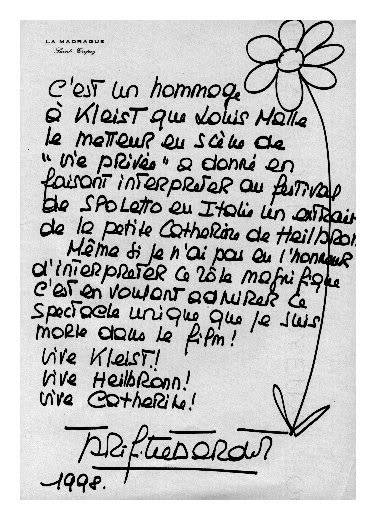 LA MADRAGUE
Saint-Tropez
C'est un hommage
à Kleist que Louis Malle
le metteur en scène de
"vie privée" a donné en
faisant interpreter au festival
de Spoletto en Italie un extrait
de la petite Catherine de Heilbronn
Même si je n'ai pas eu l'honneur
d'interpreter ce rôle magnifique
c'est en voulant admirer ce
spectacle unique que je suis
morte dans le film!
Vive Kleist!
Vive Heilbronn!
Vive Catherine!
Brigitte Bardot
1998.